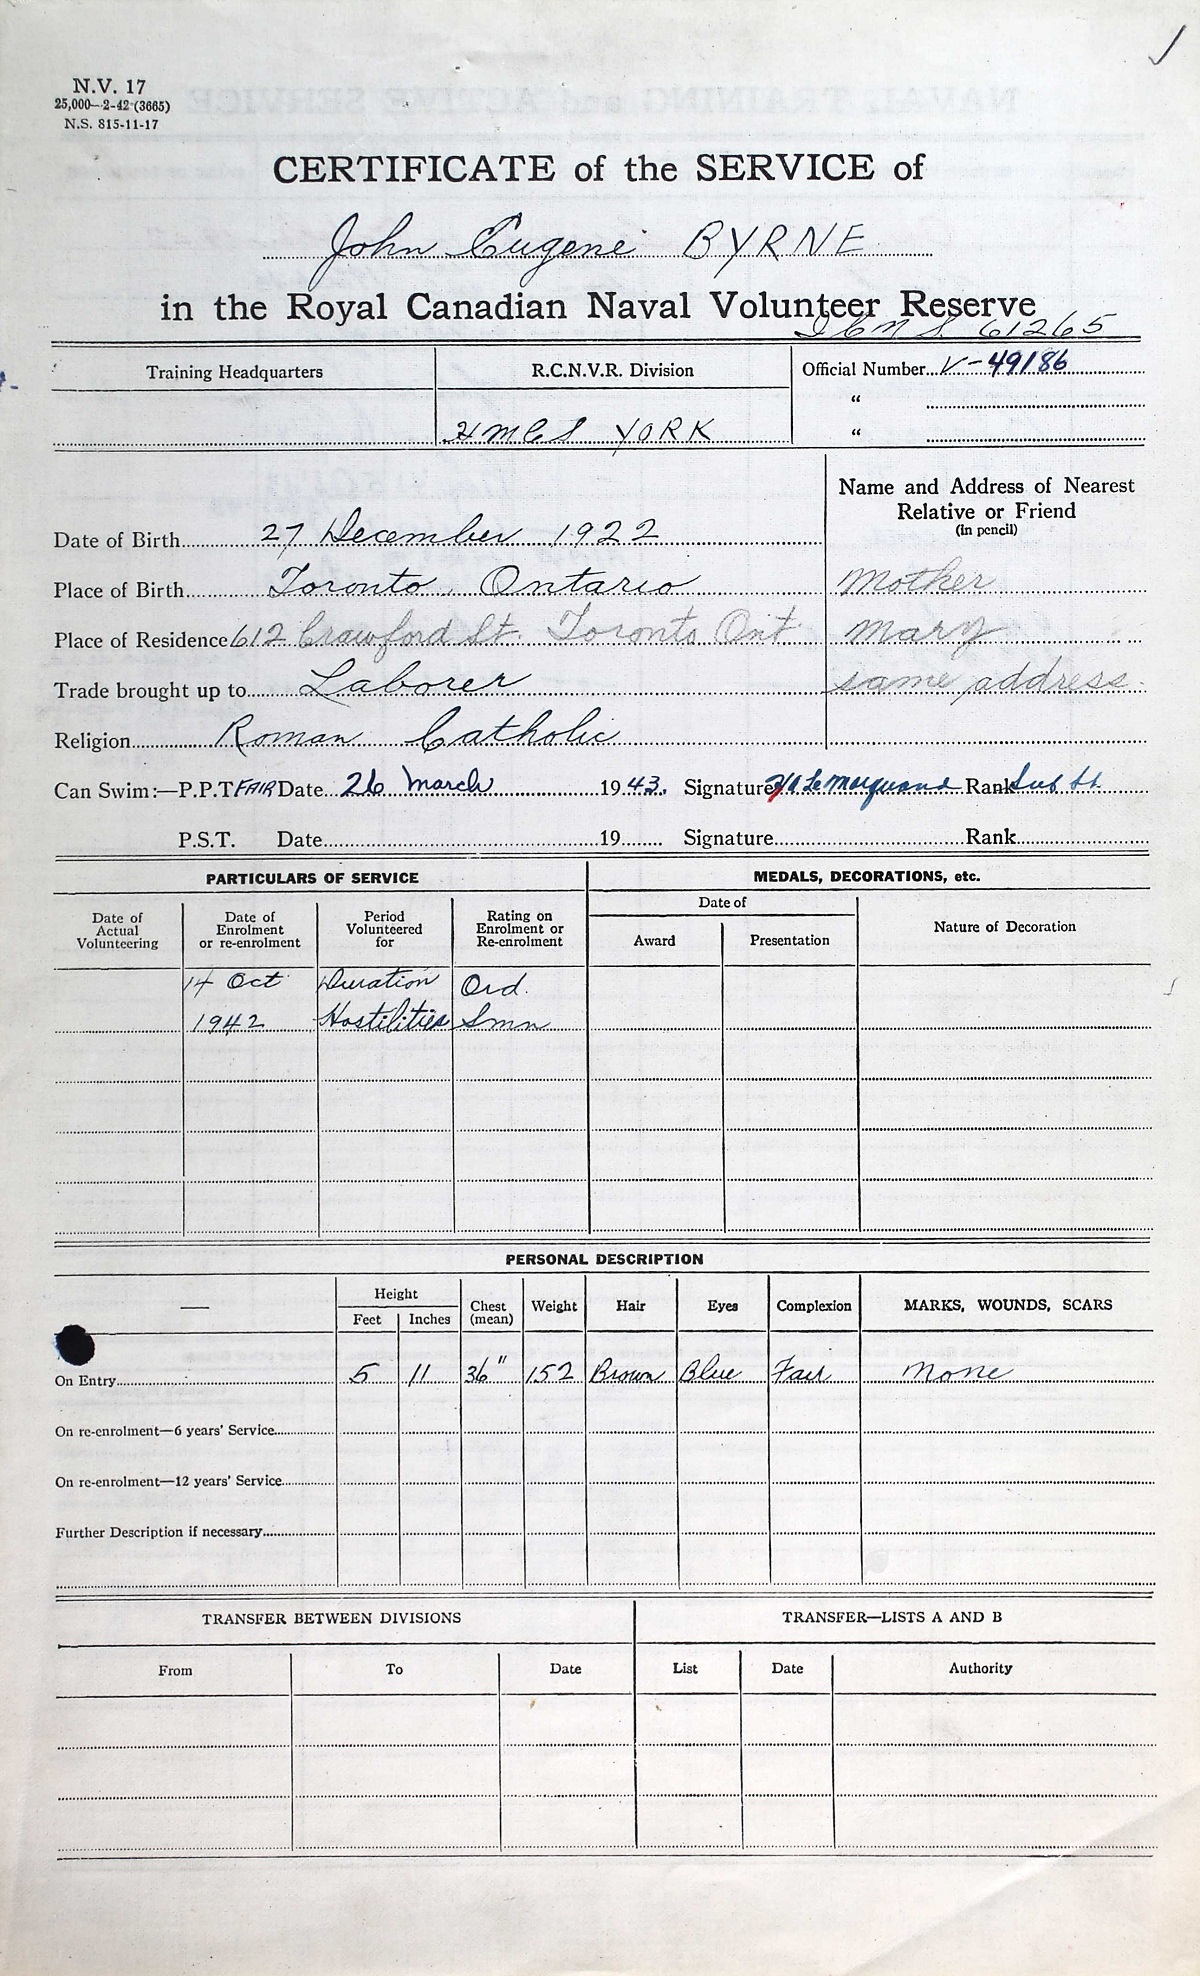 N.V. 17
25,000—2-42 (3665)
N.S. 815-11-17
CERTIFICATE of the SERVICE of
John Eugene BYRNE
in the Royal Canadian Naval Volunteer Reserve
61265
Training Headquarters
R.C.N.V.R. Division
Official Number V-49186
"
HMCS YORK
"
Name and Address of Nearest
Relative or Friend
(in pencil)
Date of Birth 27 December 1922
Place of Birth Toronto, Ontario
Mother
Place of Residence 612 Crawford St. Toronto Ont
Mary
Trade brought up to Laborer
same address.
Religion Roman Catholic
Can Swim:—P.P.T. FAIR Date 26 March 1943. Signature Le Marquand Rank Sub Lt.
P.S.T. Date 19 Signature Rank
PARTICULARS OF SERVICE
MEDALS, DECORATIONS, etc.
Date of
Actual
Volunteering
Date of
Enrolment
or re-enrolment
Period
Volunteered
for
Rating on
Enrolment or
Re-enrolment
Date of
Award
Presentation
Nature of Decoration
14 Oct Duration Ord.
1942 Hostilities Smn
PERSONAL DESCRIPTION
—
Height
Feet
Inches
Chest
(mean)
Weight
Hair
Eyes
Complexion
MARKS, WOUNDS, SCARS
On Entry 5 11 36" 152 Brown Blue Fair None
On re-enrolment—6 years' Service
On re-enrolment—12 years' Service
Further Description if necessary
TRANSFER BETWEEN DIVISIONS
TRANSFER—LISTS A AND B
From
To
Date
List
Date
Authority